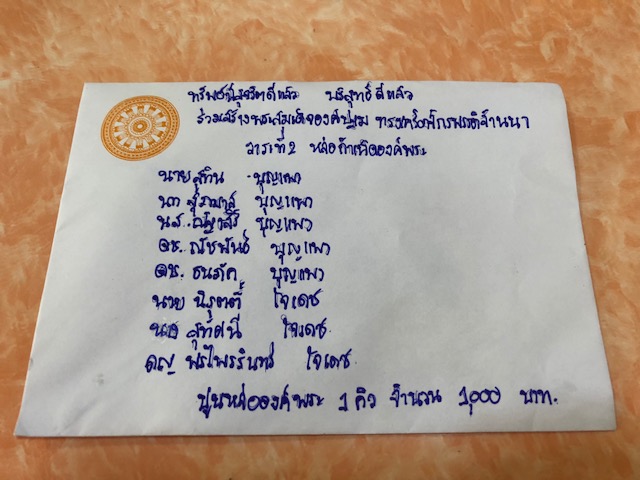 ทรัพย์นี้สุจริตดีแล้ว บริสุทธิ์ดีแล้ว
ร่วมสร้างพระสมเด็จองค์ปฐม ทรงเครื่องจักรพรรดิล้านนา
วาระที่ 2 หล่อกำเนิดองค์พระ
นายสุทิน บุญแพง
นางสุภมาส์ บุญแพง
นส. บุญแพง
ดช. ณัชพันธ์ บุญแพง
ดช. ธนภัค บุญแพง
นาย นิรุตติ์ ใจเดช
นาง สุทัศนี ใจเดช
ดญ ใจเดช
ปูนหล่อองค์พระ 1 คิว จำนวน 1,000 บาท.